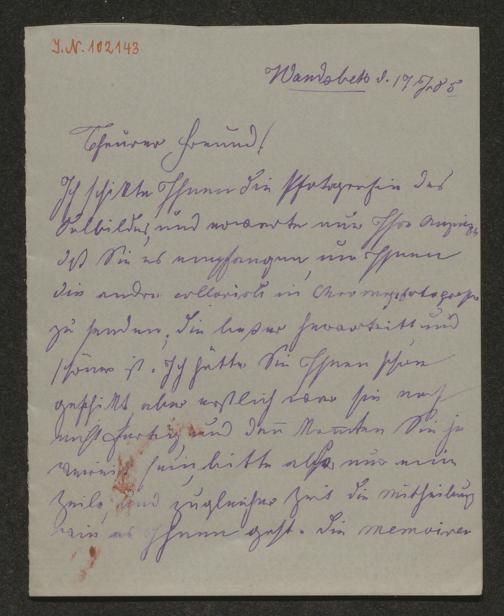 J.N. 102143
Wandsbek d. 17/5/85
Theurer Freund!
Ich schikte Ihnen die Photografie des
Oelbildes, und erwarte nur Ihre Anzeige
daß Sie es empfangen, um Ihnen
die andre collorirte in Chromophotografie
zu senden, die besser hervortritt und
schöner ist. Ich hätte Sie Ihnen schon
geschikt aber erstlich war sie noch
nicht fertig und dann konnten Sie ja
verreist sein, bitte also nur eine
Zeile, und zugleicher Zeit die Mittheilung
wie es Ihnen geht. Die Memoiren